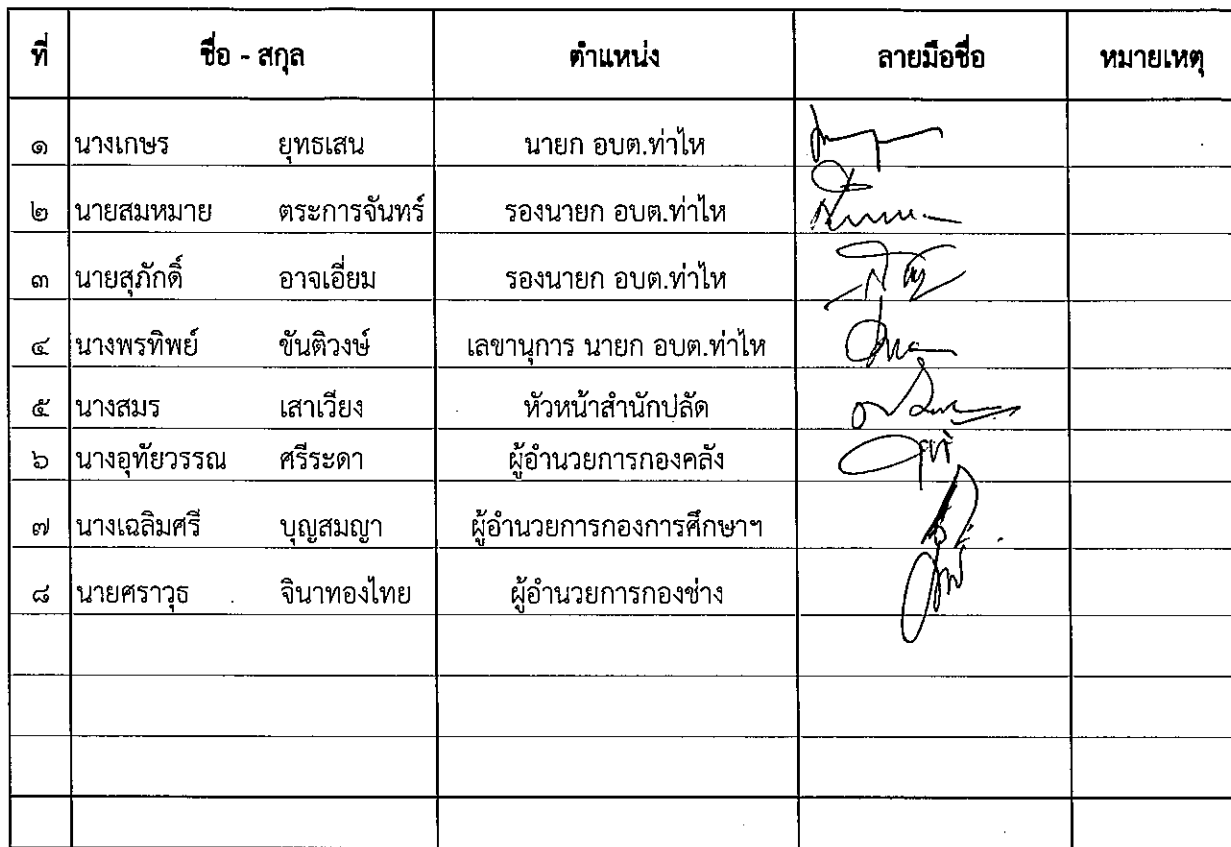 ที่ ชื่อ - สกุล ตำแหน่ง ลายมือชื่อ หมายเหตุ
๑ นางเกษร ยุทธเสน นายก อบต.ท่าไห
๒ นายสมหมาย ตระการจันทร์ รองนายก อบต.ท่าไห
๓ นายสุภักดิ์ อาจเอี่ยม รองนายก อบต.ท่าไห
๔ นางพรทิพย์ ขันติวงษ์ เลขานุการ นายก อบต.ท่าไห
๕ นางสมร เสาเวียง หัวหน้าสำนักปลัด
๖ นางอุทัยวรรณ ศรีระดา ผู้อำนวยการกองคลัง
๗ นางเฉลิมศรี บุญสมญา ผู้อำนวยการกองการศึกษาฯ
๘ นายศราวุธ จินาทองไทย ผู้อำนวยการกองช่าง